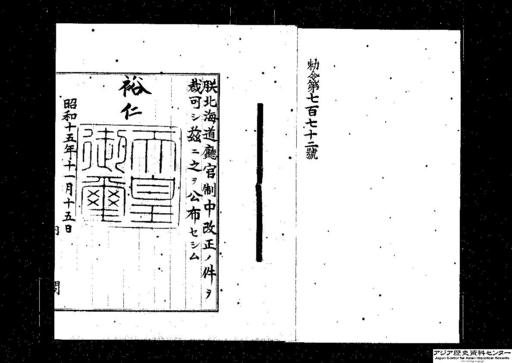 勅令第七百七十二號
朕北海道廳官制中改正ノ件ヲ
裁可シ茲ニ之ヲ公布セシム
裕仁
天皇
御璽
昭和十五年十一月十五日
アジア歴史資料センター
Japan Center for Asian Historical Records